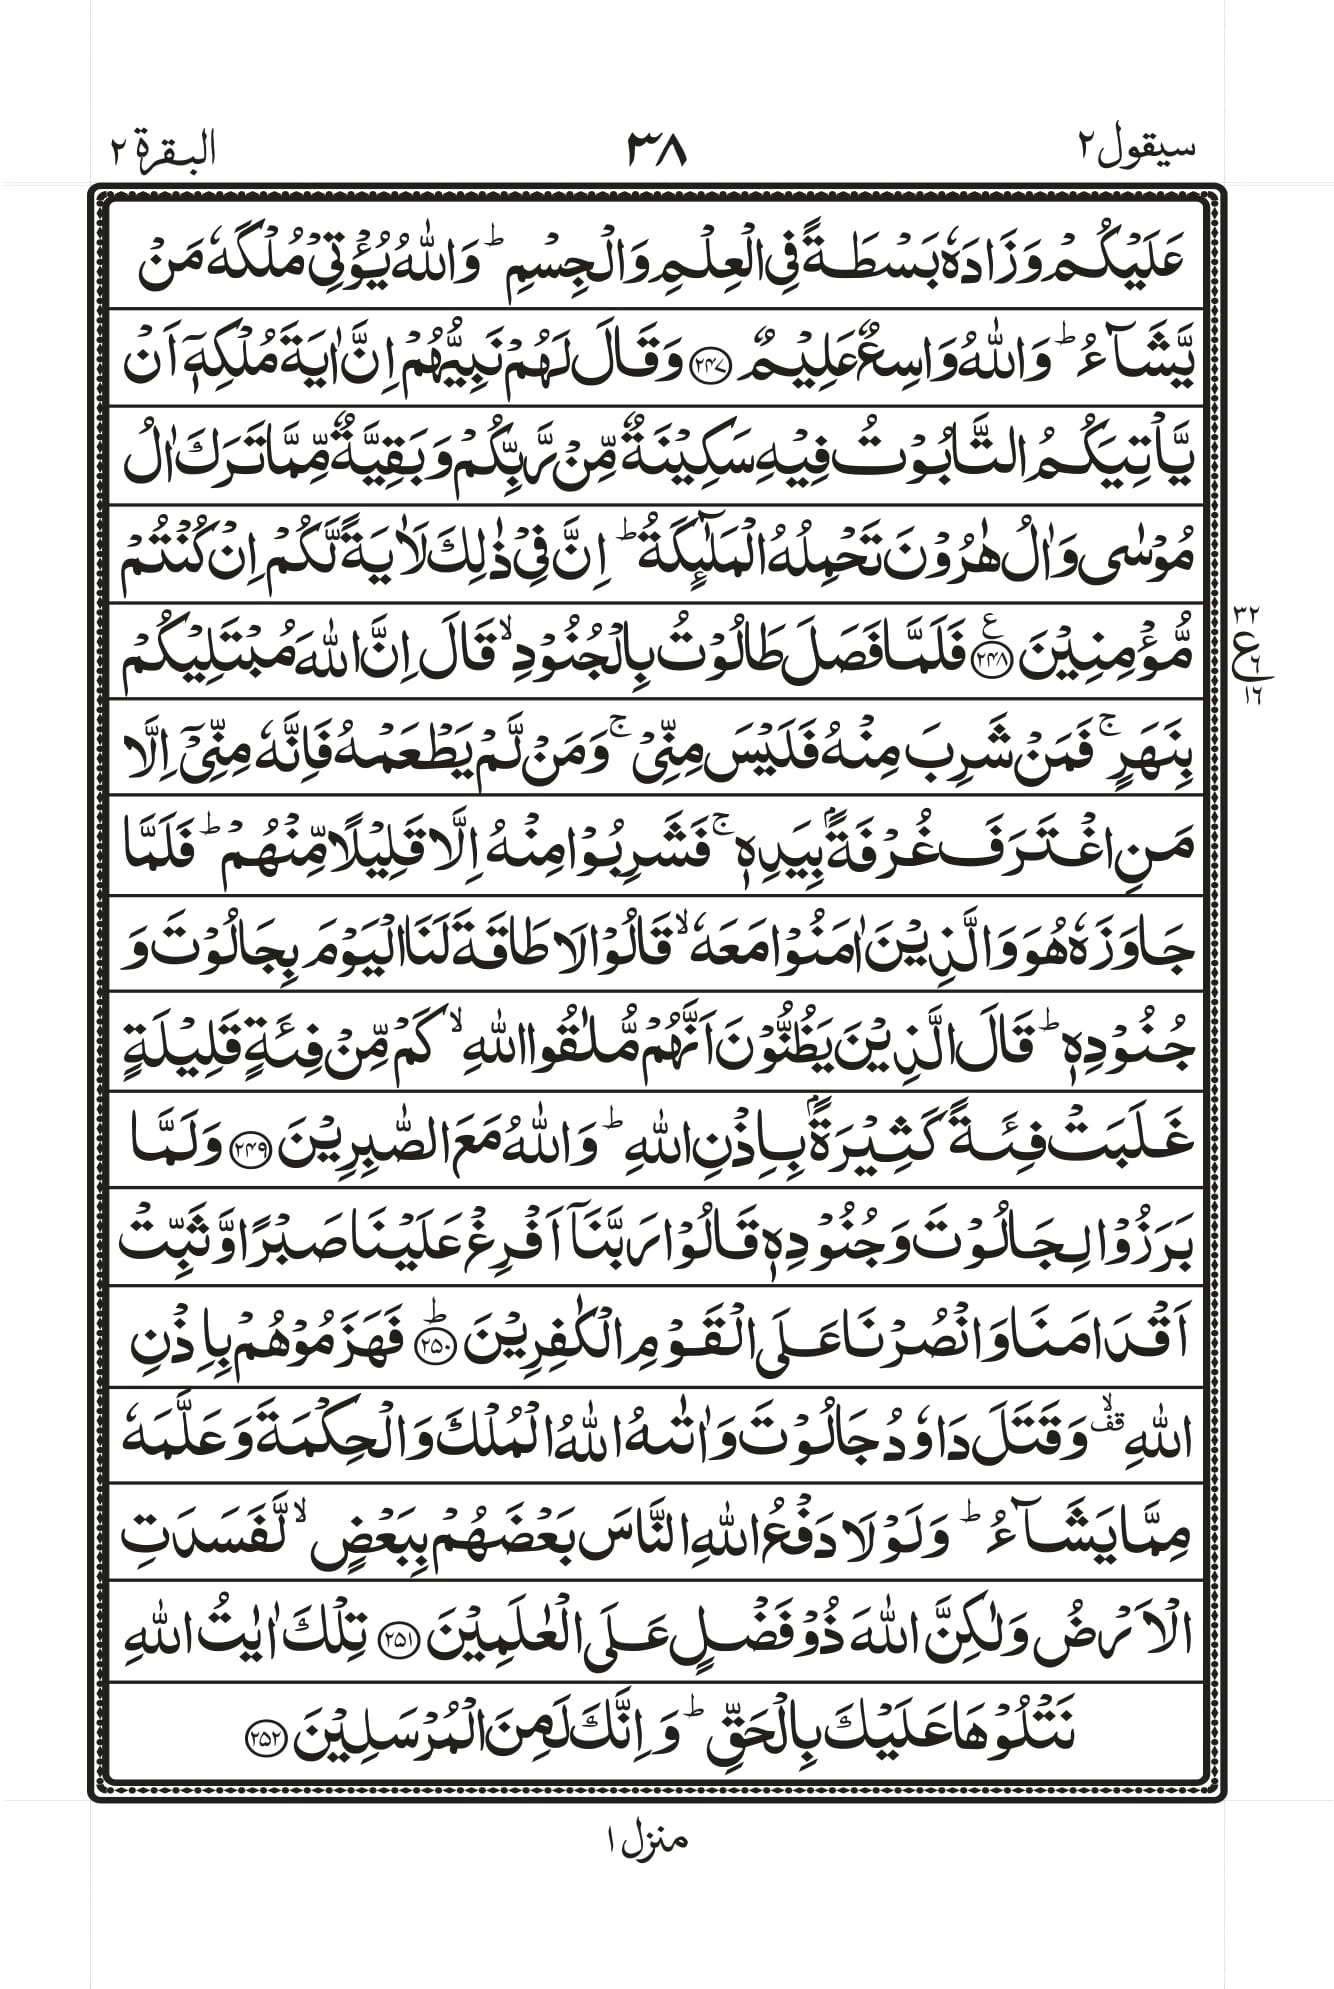 سيقول ٢ ٣٨ البقرة ٢
عَلَيْكُمْ وَزَادَهٗ بَسْطَةً فِى الْعِلْمِ وَالْجِسْمِ ؕ وَاللّٰهُ يُؤْتِىْ مُلْكَهٗ مَنْ
يَّشَآءُ ؕ وَاللّٰهُ وَاسِعٌ عَلِيْمٌ ﴿۲۴۷﴾ وَقَالَ لَهُمْ نَبِيُّهُمْ اِنَّ اٰيَةَ مُلْكِهٖۤ اَنْ
يَّاْتِيَكُمُ التَّابُوْتُ فِيْهِ سَكِيْنَةٌ مِّنْ رَّبِّكُمْ وَبَقِيَّةٌ مِّمَّا تَرَكَ اٰلُ
مُوْسٰى وَاٰلُ هٰرُوْنَ تَحْمِلُهُ الْمَلٰٓئِكَةُ ؕ اِنَّ فِىْ ذٰلِكَ لَاٰيَةً لَّكُمْ اِنْ كُنْتُمْ
مُّؤْمِنِيْنَ ﴿۲۴۸﴾ ع فَلَمَّا فَصَلَ طَالُوْتُ بِالْجُنُوْدِ ۙ قَالَ اِنَّ اللّٰهَ مُبْتَلِيْكُمْ
٣٢
ع
٦
١٦
بِنَهَرٍ ۚ فَمَنْ شَرِبَ مِنْهُ فَلَيْسَ مِنِّىْ ۚ وَمَنْ لَّمْ يَطْعَمْهُ فَاِنَّهٗ مِنِّىْۤ اِلَّا
مَنِ اغْتَرَفَ غُرْفَةًۢ بِيَدِهٖ ۚ فَشَرِبُوْا مِنْهُ اِلَّا قَلِيْلًا مِّنْهُمْ ؕ فَلَمَّا
جَاوَزَهٗ هُوَ وَالَّذِيْنَ اٰمَنُوْا مَعَهٗ ۙ قَالُوْا لَا طَاقَةَ لَنَا الْيَوْمَ بِجَالُوْتَ وَ
جُنُوْدِهٖ ؕ قَالَ الَّذِيْنَ يَظُنُّوْنَ اَنَّهُمْ مُّلٰقُوا اللّٰهِ ۙ كَمْ مِّنْ فِئَةٍ قَلِيْلَةٍ
غَلَبَتْ فِئَةً كَثِيْرَةًۢ بِاِذْنِ اللّٰهِ ؕ وَاللّٰهُ مَعَ الصّٰبِرِيْنَ ﴿۲۴۹﴾ وَلَمَّا
بَرَزُوْا لِجَالُوْتَ وَجُنُوْدِهٖ قَالُوْا رَبَّنَاۤ اَفْرِغْ عَلَيْنَا صَبْرًا وَّثَبِّتْ
اَقْدَامَنَا وَانْصُرْنَا عَلَى الْقَوْمِ الْكٰفِرِيْنَ ﴿۲۵۰﴾ ؕ فَهَزَمُوْهُمْ بِاِذْنِ
اللّٰهِ ۙ قف وَقَتَلَ دَاوٗدُ جَالُوْتَ وَاٰتٰىهُ اللّٰهُ الْمُلْكَ وَالْحِكْمَةَ وَعَلَّمَهٗ
مِمَّا يَشَآءُ ؕ وَلَوْلَا دَفْعُ اللّٰهِ النَّاسَ بَعْضَهُمْ بِبَعْضٍ ۙ لَّفَسَدَتِ
الْاَرْضُ وَلٰكِنَّ اللّٰهَ ذُوْ فَضْلٍ عَلَى الْعٰلَمِيْنَ ﴿۲۵۱﴾ تِلْكَ اٰيٰتُ اللّٰهِ
نَتْلُوْهَا عَلَيْكَ بِالْحَقِّ ؕ وَاِنَّكَ لَمِنَ الْمُرْسَلِيْنَ ﴿۲۵۲﴾
منزل ١